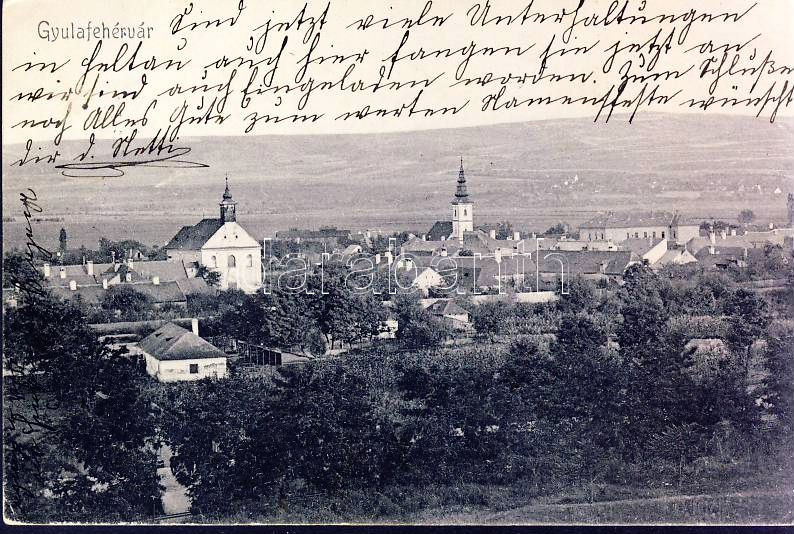 Gyulafehérvár
Sind jetzt viele Unterhaltungen
in Heltau auch hier fangen sie jetzt an,
wir sind auch Eingeladen worden. Zum Schluße
noch Alles Gute zum werten Namensfeste wünscht
dir d. Netti
Darabanth